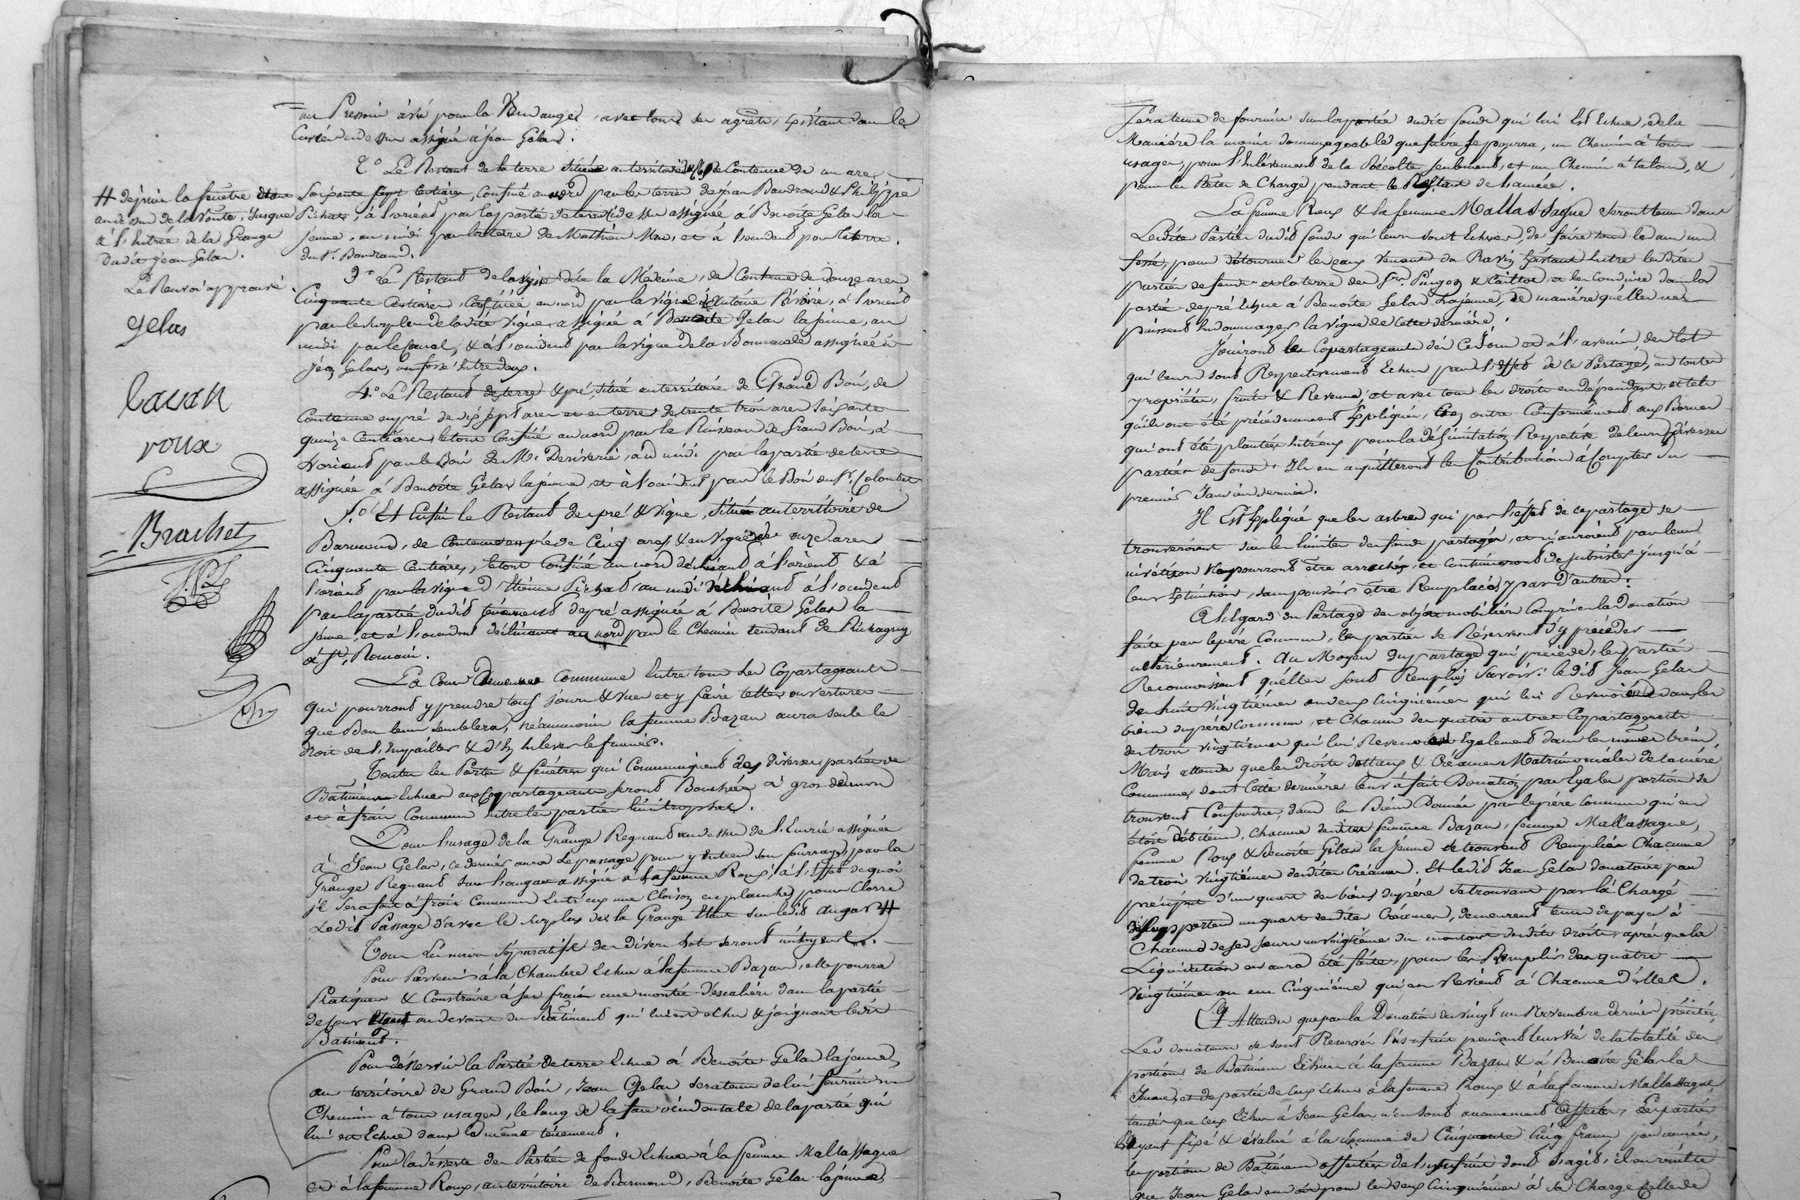 un Pressoir à vis pour la Vendange, avec tous ses agrès, existant dans le
Cuvier ci dessus assigné à Jean Gelas.
2° Le Restant de la terre située au territoire de Contenue de un are
Soixante sept Centiares, Confiné au nord par les terres de Jean Baudrand & Philippe
Pichat, à l'orient par la partie de terre ci dessus assignée à Benoîte Gelas la
jeune, au midi par la terre de Mathieu et à l'occident par la terre
du Sr. Baudrand.
3° Le Restant de la vigne dite la Médecine, de Contenue de douze ares
Cinquante Centiares, Confinée au nord par la vigne d'Antoine à l'orient
par le surplus de la dite Vigne assignée à Benoîte Gelas la jeune, au
midi par le & à l'occident par la vigne de la assignée à
Jean Gelas, un fossé entre deux.
4° Le Restant de terre & pré, situé au territoire de Grand Bois, de
Contenue en pré de dix sept ares et en terre de trente trois ares soixante
quinze Centiares, etant Confiné au nord par le Ruisseau de Grand Bois, à
l'orient par le Bois de Mr. au midi par la partie de terre
assignée à Benoîte Gelas la jeune et à l'occident par le Bois du Sr. Colombet
5° Et Enfin le Restant de pré & vigne, situé au territoire de
de Contenue en pré de Cinq ares & en Vigne de onze ares
Cinquante Centiares, etant Confiné au nord déclinant à l'orient & à
l'orient par la vigne d'Etienne Pichat au midi déclinant à l'occident
par la partie dudit tènement de pré assignée à Benoîte Gelas la
jeune, et à l'occident déclinant au nord par le Chemin tendant de
à St. Romain.
La Cour Demeure commune Entre tous les Copartageants
qui pourront y prendre tous jours & vues et y faire telles ouvertures
que Bon leur semblera, néanmoins la femme Bazan aura seule le
droit de l'empailler & d'En Enlever le fumier.
Toutes les Portes & fenêtres qui Communiquent des diverses parties de
Bâtiments Echues aux Copartageants seront Bouchées à gros de mur
et à frais Communs Entre les parties limitrophes.
Pour l'usage de la Grange Regnant au dessus de l'Ecurie assignée
à Jean Gelas, ce dernier aura le passage pour y Entrer son fourrage, par la
Grange Regnant sur l'angar assigné à la femme Roux, à l'Effet de quoi
il sera fait à frais Communs Entr'eux une Cloison en planches, pour Clorre
Ledit Passage d'avec le surplus de la Grange Etant sur ledit Angar #
Tous Les murs séparatifs des divers lots seront mitoyens.
Pour Parvenir à la Chambre Echue à la femme Bazan, elle pourra
Pratiquer & Construire à ses frais une montée d'escaliers dans la partie
de cour Etant au devant du Bâtiment qui lui est echu & joignant ledit
Bâtiment.
Pour désservir la Partie de terre Echue à Benoîte Gelas la jeune,
au territoire de Grand Bois, Jean Gelas sera tenu de lui fournir un
Chemin à tous usages, le long de la face occidentale de la partie qui
lui est Echue dans le même tènement.
Pour la desserte des Parties de fonds Echues à la femme Mallassagne
et à la femme Roux, au territoire de Benoîte Gelas la jeune
# depuis la fenêtre etant
au dessus de la voûte, jusque
à l'Entrée de la Grange
dudit Jean Gelas.
Le Renvoi approuvé.
gelas
roux
Brachet
Sera tenue de fournir sur la partie dudit fonds qui lui Est Echue, de la
Manière la moins dommageable que faire se pourra, un Chemin à tous
usages, pour l'Enlèvement de la Récolte seulement, et un Chemin à talons, &
pour les Bêtes de Charge pendant le Restant de l'année.
La femme Roux & la femme Mallassagne seront tenues dans
Lesdites Parties dudit fonds qui leur sont Echues, de faire tous les ans un
fossé, pour détourner les eaux venant du Ravin Existant Entre lesdites
parties de fonds et la terre des Srs. & Caillot et les conduire dans la
partie de pré Echue à Benoîte Gelas la jeune, de manière qu'elles ne
puissent Endommager la vigne de cette dernière.
Jouiront les Copartageants dès Ce jour et à l'avenir des lots
qui leur sont Respectivement Echus par l'Effet de ce Partage, en toute
propriété, fruits & Revenus, et avec tous les droits en dépendants, et tels
qu'ils ont été précédemment Expliqués, Et en outre Conformément aux Bornes
qui ont été plantées Entr'eux pour la délimitation Respective de leurs diverses
parties de fonds. Ils en acquitteront les Contributions à Compter du
premier Janvier dernier.
Il Est Expliqué que les arbres qui par l'effet de ce partage se
trouveront sur les limites des fonds partagés, et n'auront pas leur
ne pourront être arrachés et continueront de subsister jusqu'à
leur Extinction, sans pouvoir être Remplacés par d'autres.
A l'Egard du Partage des objets mobiliers Compris en la Donation
faite par le père Commun, les parties se Réservent d'y procéder
ultérieurement. Au Moyen du partage qui précède, les parties
Reconnaissent qu'elles sont Remplies Savoir: ledit Jean Gelas
de huit vingtièmes ou deux Cinquièmes qui lui Revenoient dans les
biens du père Commun, et Chacun des quatre autres Copartageants
des trois vingtièmes qui lui Revenoient Egalement dans les mêmes biens.
Mais attendu que les droits dottaux & Créances Matrimoniales de la mère
Commune, dont Cette dernière leur a fait Donation par Egales portions se
trouvent Confondus dans les Biens Donnés par le père Commun qui en
étoit débiteur, Chacune desdites femme Bazan, femme Mallassagne,
femme Roux & Benoîte Gelas la jeune se trouvent Remplies Chacune
de trois vingtièmes desdites Créances. Et ledit Jean Gelas donataire par
préciput d'un quart des biens du père se trouvant par là Chargé
de supporter un quart desdites Créances, demeurent tenu de payer à
Chacune de ses sœurs un vingtième du montant desdits droits, après que la
Liquidation en aura été faite, pour les Remplir des quatre
vingtièmes ou un Cinquième qui en Revient à Chacune d'Elles.
Attendu que par la Donation du vingt un Novembre dernier précitée,
Les donateurs se sont Reservé l'usufruit pendant leur vie de la totalité des
portions de Bâtiments Echues à la femme Bazan & à Benoîte Gelas la
Jeune, et de partie de ceux Echus à la femme Roux & à la femme Mallassagne
tandis que ceux Echus à Jean Gelas n'en sont aucunement affectés, les parties
ayant fixé & évalué à la somme de Cinquante Cinq francs par année,
les portions de Bâtiments affectées de l'usufruit dont s'agit, il en résulte
que Jean Gelas en a pour les deux Cinquièmes à sa Charge Celle de